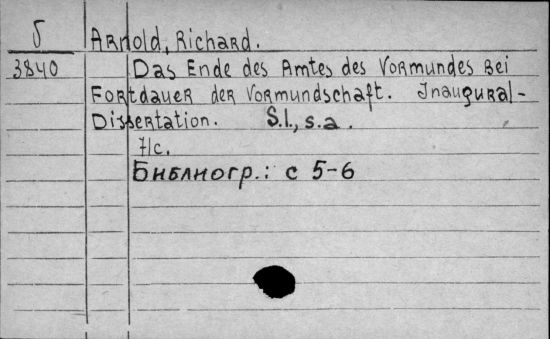 5 Arnold, Richard.
3840 Das Ende des Amtes des Vormundes bei
Fortdauer der Vormundschaft. Inaugural-
Dissertation. S.l., s.a.
71c.
Библиогр.: с 5-6